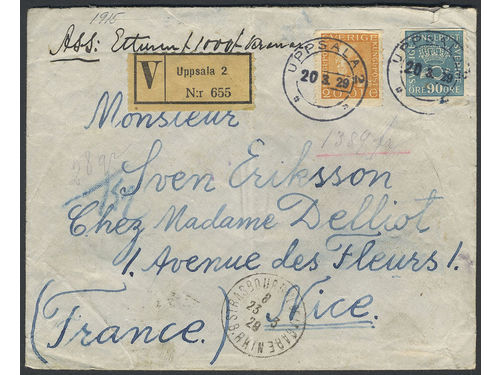 1915
Ass: Etttusen f. 1000 f.
V
Uppsala 2
N:r 655
SVERIGE
UPPSALA 2
20 3. 29
UPPSALA
20 3. 29
ÖRE 90 ÖRE
Monsieur
138 gr
Sven Eriksson
Chez Madame Delliot
1. Avenue des Fleurs 1.
(France.) Nice.
STRASBOURG GARE
8
23 3
29